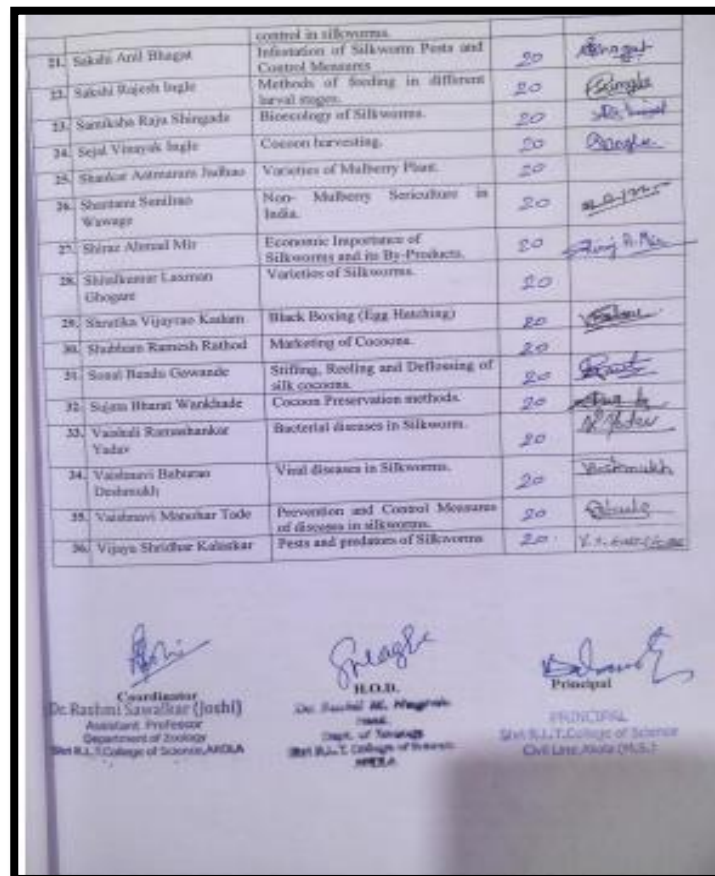 control in silkworms.
21. Sakshi Anil Bhagat Infestation of Silkworm Pests and 20
Control Measures
22. Sakshi Rajesh Ingle Methods of feeding in different 20
larval stages.
23. Samiksha Raju Shingade Bioecology of Silkworms. 20
24. Sejal Vinayak Ingle Cocoon harvesting. 20
25. Shankar Aatmaram Jadhao Varieties of Mulberry Plant. 20
26. Shantanu Non- Mulberry Sericulture in 20
Wawage India.
27. Shiraz Ahmad Mir Economic Importance of 20
Silkworms and its By-Products.
28. Laxman Varieties of Silkworms. 20
Ghogare
29. Shrutika Vijayrao Kadam Black Boxing (Egg Hatching) 20
30. Shubham Ramesh Rathod Marketing of Cocoons. 20
31. Sonal Bandu Gawande Stifling, Reeling and Deflossing of 20
silk cocoons.
32. Sujata Bharat Wankhade Cocoon Preservation methods. 20
33. Vaishali Ramashankar Bacterial diseases in Silkworm. 20
Yadav
34. Vaishnavi Baburao Viral diseases in Silkworms. 20
Deshmukh
35. Vaishnavi Manohar Tade Prevention and Control Measures 20
of diseases in silkworms.
36. Vijaya Shridhar Kalaskar Pests and predators of Silkworms 20
Coordinator
Dr. Rashmi Sawalkar (Joshi)
Assistant Professor
Department of Zoology
Shri R.L.T. College of Science, AKOLA
H.O.D.
Dr.
Head
Dept. of Zoology
Shri R.L.T. College of Science
AKOLA
Principal
PRINCIPAL
Shri R.L.T. College of Science
Civil Line, Akola (M.S.)